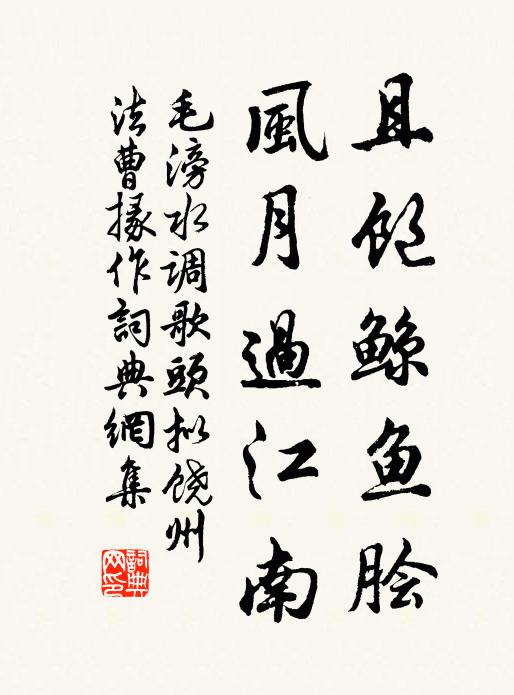 且饱鲸鱼脍
風月過江南
毛滂水调歌頭拟饶州
法曹掾作詞典網集
詞典网印